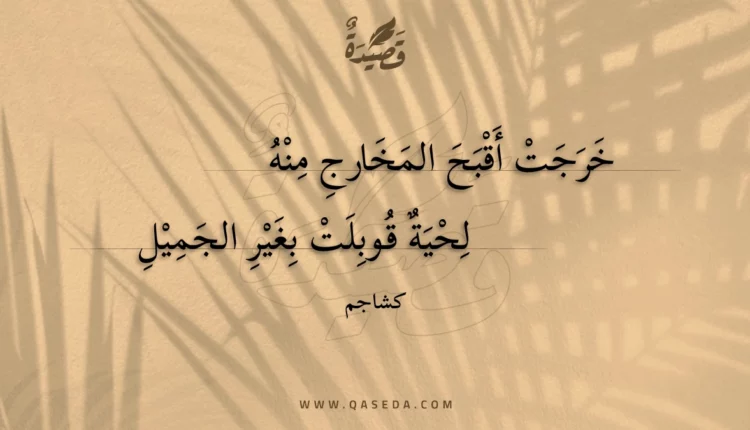 قَصِيْدَةٌ
خَرَجَتْ أَقْبَحَ المَخَارجِ مِنْهُ
لِحْيَةٌ قُوبِلَتْ بِغَيْرِ الجَمِيْلِ
كشاجم
WWW.QASEDA.COM